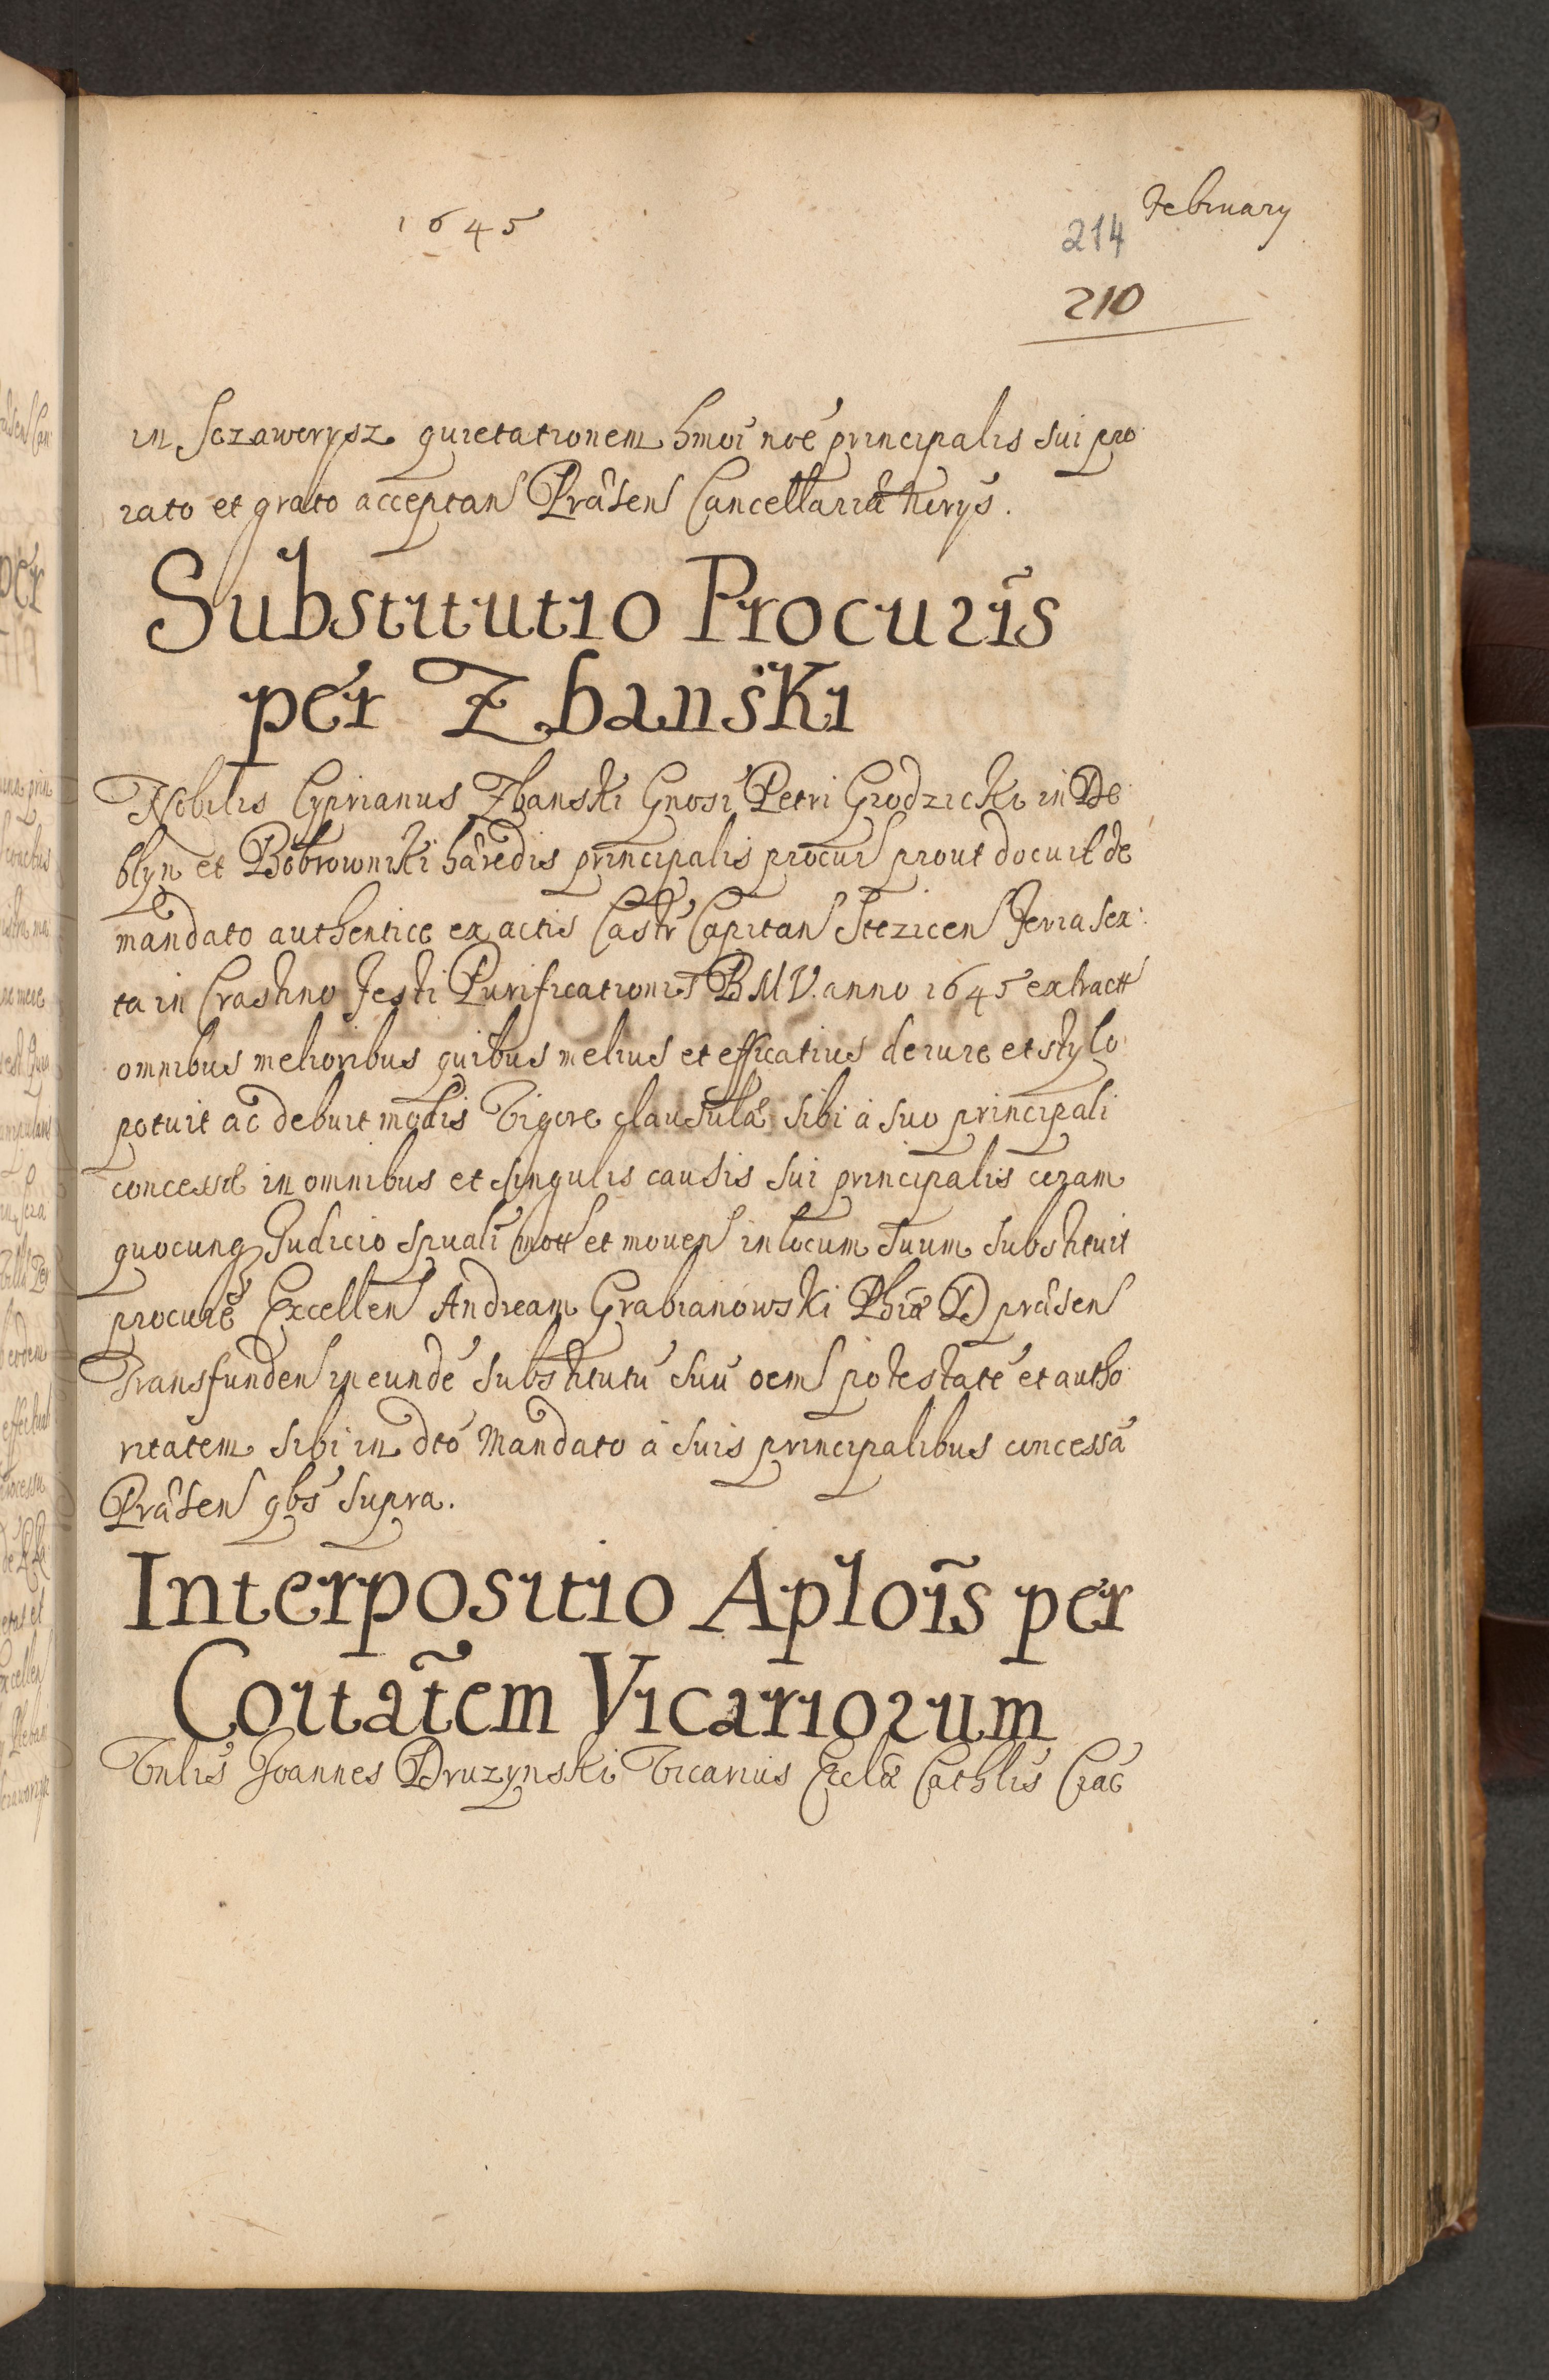 1645
February
214
210
in Sczawerysz quietationem hmoi noe principalis sui pro
rato et grato acceptan Præsen Cancellariæ
Substitutio Procuris
per Zbanski
Nobilis Cyprianus Zbanski Gnosi Petri Grodzicki in De
blyn et Bobrowniki hæredis principalis procur prout docuit de
mandato authentice ex actis Castr Capitan Stezicen Feria sex
ta in Crastino Festi Purificationis BMV. anno 1645 extract
omnibus melioribus quibus melius et efficatius de iure et stylo
potuit ac debuit modis Vigore clausulæ sibi à suo principali
concessæ in omnibus et singulis causis sui principalis coram
quocunq Judicio spuali mott et moven in locum suum substituit
procure Excellen Andream Grabianowski Phiæ D præsen
Transfunden in eunde substitutu suu oem potestate et autho
ritatem sibi in dto Mandato à suis principalibus concessa
Præsen qbs supra.
Interpositio Aplois per
Coitatem Vicariorum
Vnlis Joannes Druzynski Vicarius Ecclæ Cathlis Crac